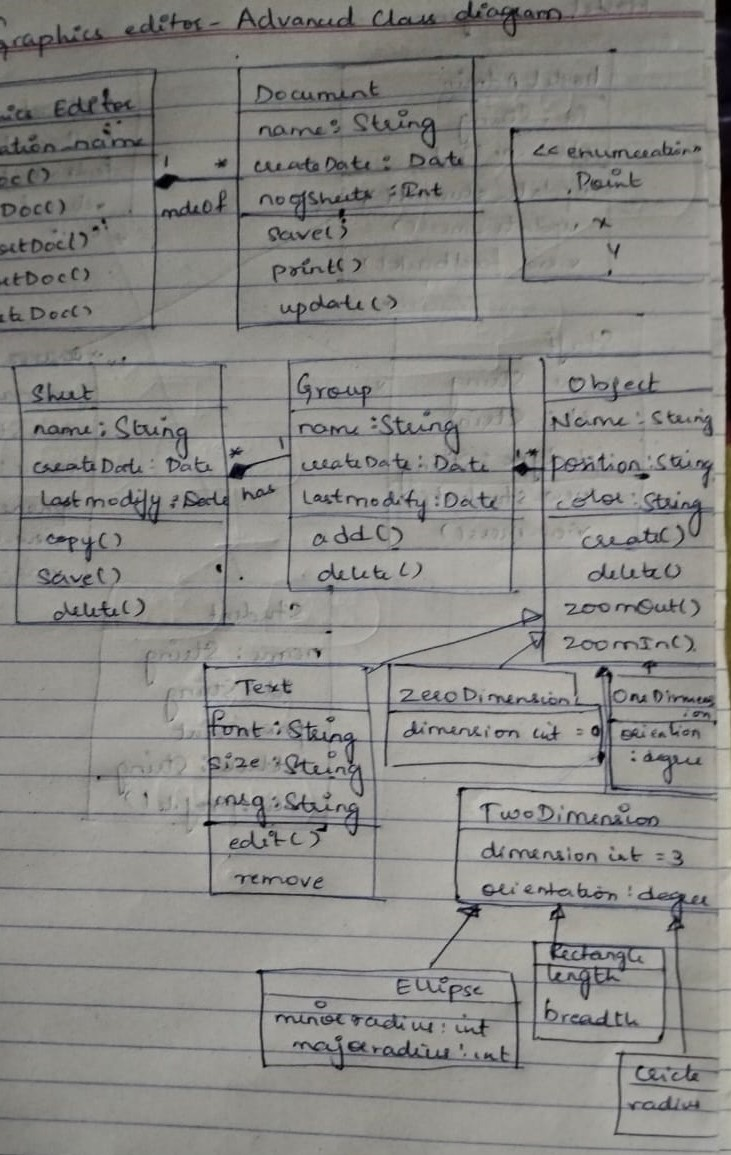 graphics editor - Advanced Class diagram
ics Editor
ation name
oc()
Doc()
Doc()
etDoc()
te Doc()
1 *
madeOf
Document
name: String
createDate: Date
nofsheets: Int
save()
print()
update()
<<enumeration>>
Point
x
y
Sheet
name: String
createDate: Date
Lastmodify: Date
copy()
save()
delete()
* 1
has
Group
name: String
createDate: Date
Lastmodify: Date
add()
delete()
Object
Name: String
position: String
color: String
create()
delete()
zoomOut()
zoomIn()
Text
font: String
size: String
msg: String
edit()
remove
ZeroDimension
dimension int = 0
OneDimens
ion
orientation
: degree
TwoDimension
dimension int = 3
orientation: degree
Ellipse
minor radius: int
major radius: int
Rectangle
length
breadth
Circle
radius